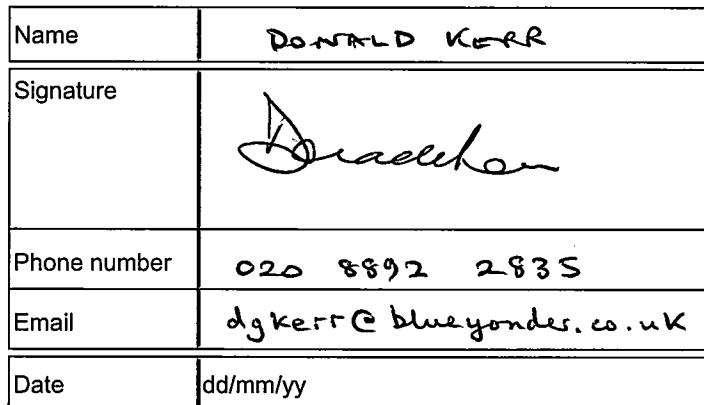 Name DONALD KERR
Signature
Phone number 020 8892 2835
Email dgkerr@blueyonder.co.uk
Date dd/mm/yy